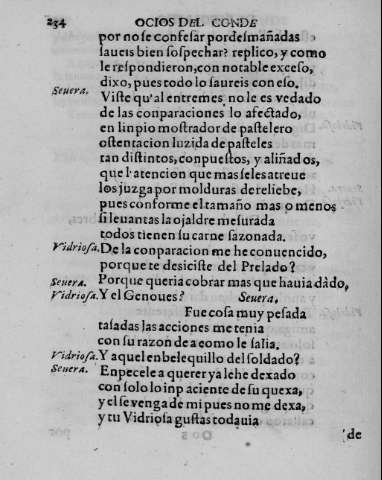 234 OCIOS DEL CONDE
por no se confesar por desmañadas
saueis bien sospechar? replico, y como
le respondieron, con notable exceso,
dixo, pues todo lo saureis con eso.
Seuera. Viste qu'al entremes no le es vedado
de las conparaciones lo afectado,
en linpio mostrador de pastelero
ostentacion luzida de pasteles
tan distintos, conpuestos, y aliñados,
que l'atencion que mas seles atreue
los juzga por molduras de reliebe,
pues conforme el tamaño mas o menos
si leuantas la ojaldre mesurada
todos tienen su carne sazonada.
Vidriosa. De la conparacion me he conuencido,
porque te desiciste del Prelado?
Seuera. Porque queria cobrar mas que hauia dàdo,
Vidriosa. Y el Genoues? Seuera.
Fue cosa muy pesada
tasadas las acciones me tenia
con su razon de a como le salia.
Vidriosa. Y aquel enbelequillo del soldado?
Seuera. Enpecele a querer ya lehe dexado
con solo lo inpaciente de su quexa,
y el se venga de mi pues no me dexa,
y tu Vidriosa gustas todauia
de